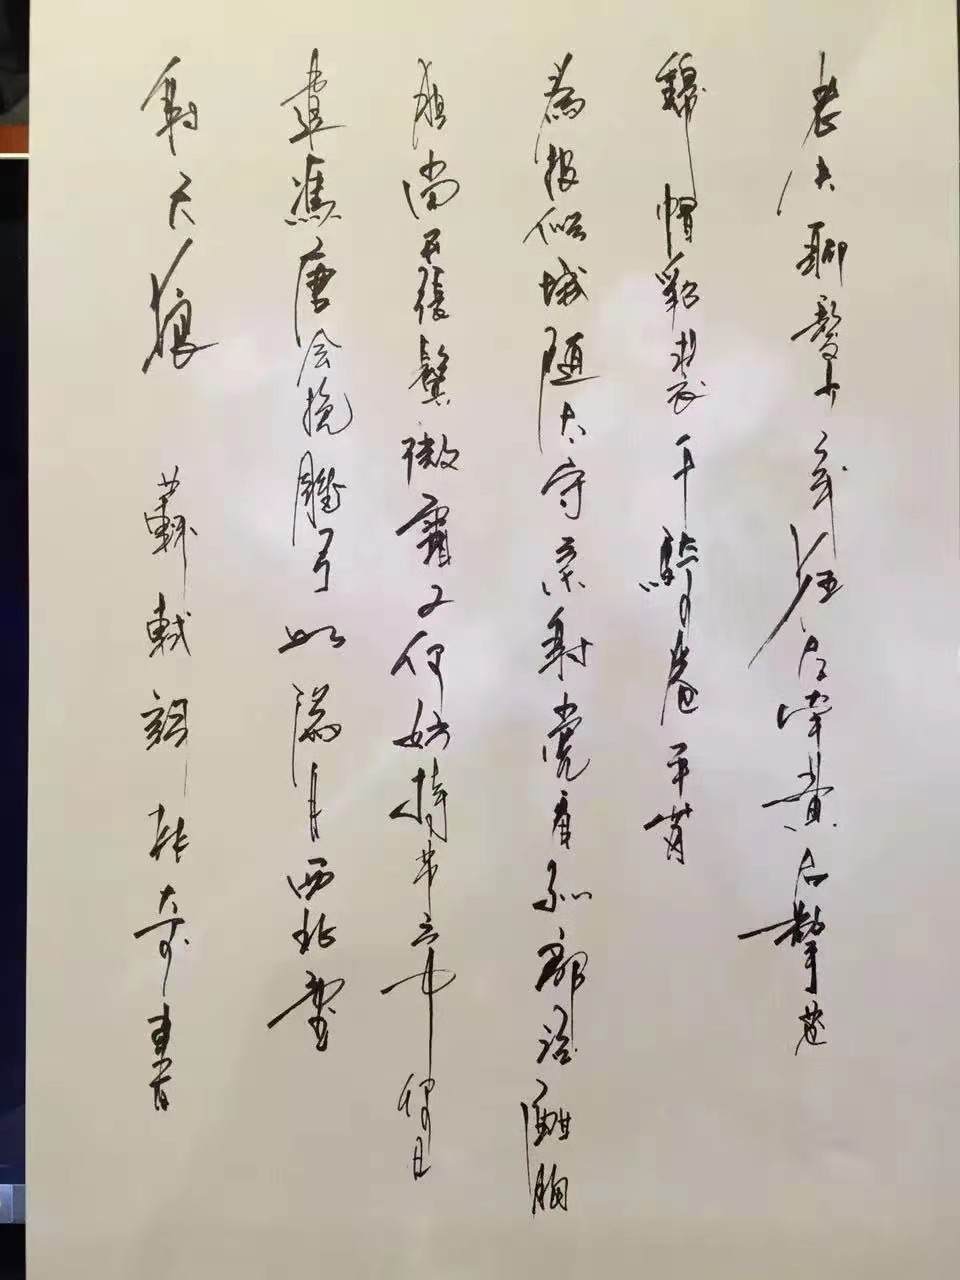 老夫聊發少年狂左牽黃右擎蒼
錦帽貂裘千騎卷平岡
為報傾城隨太守親射虎看孫郎酒酣胸
膽尚開張鬢微霜又何妨持節雲中何日
遣馮唐会挽雕弓如滿月西北望
射天狼 蘇軾詞林奇書